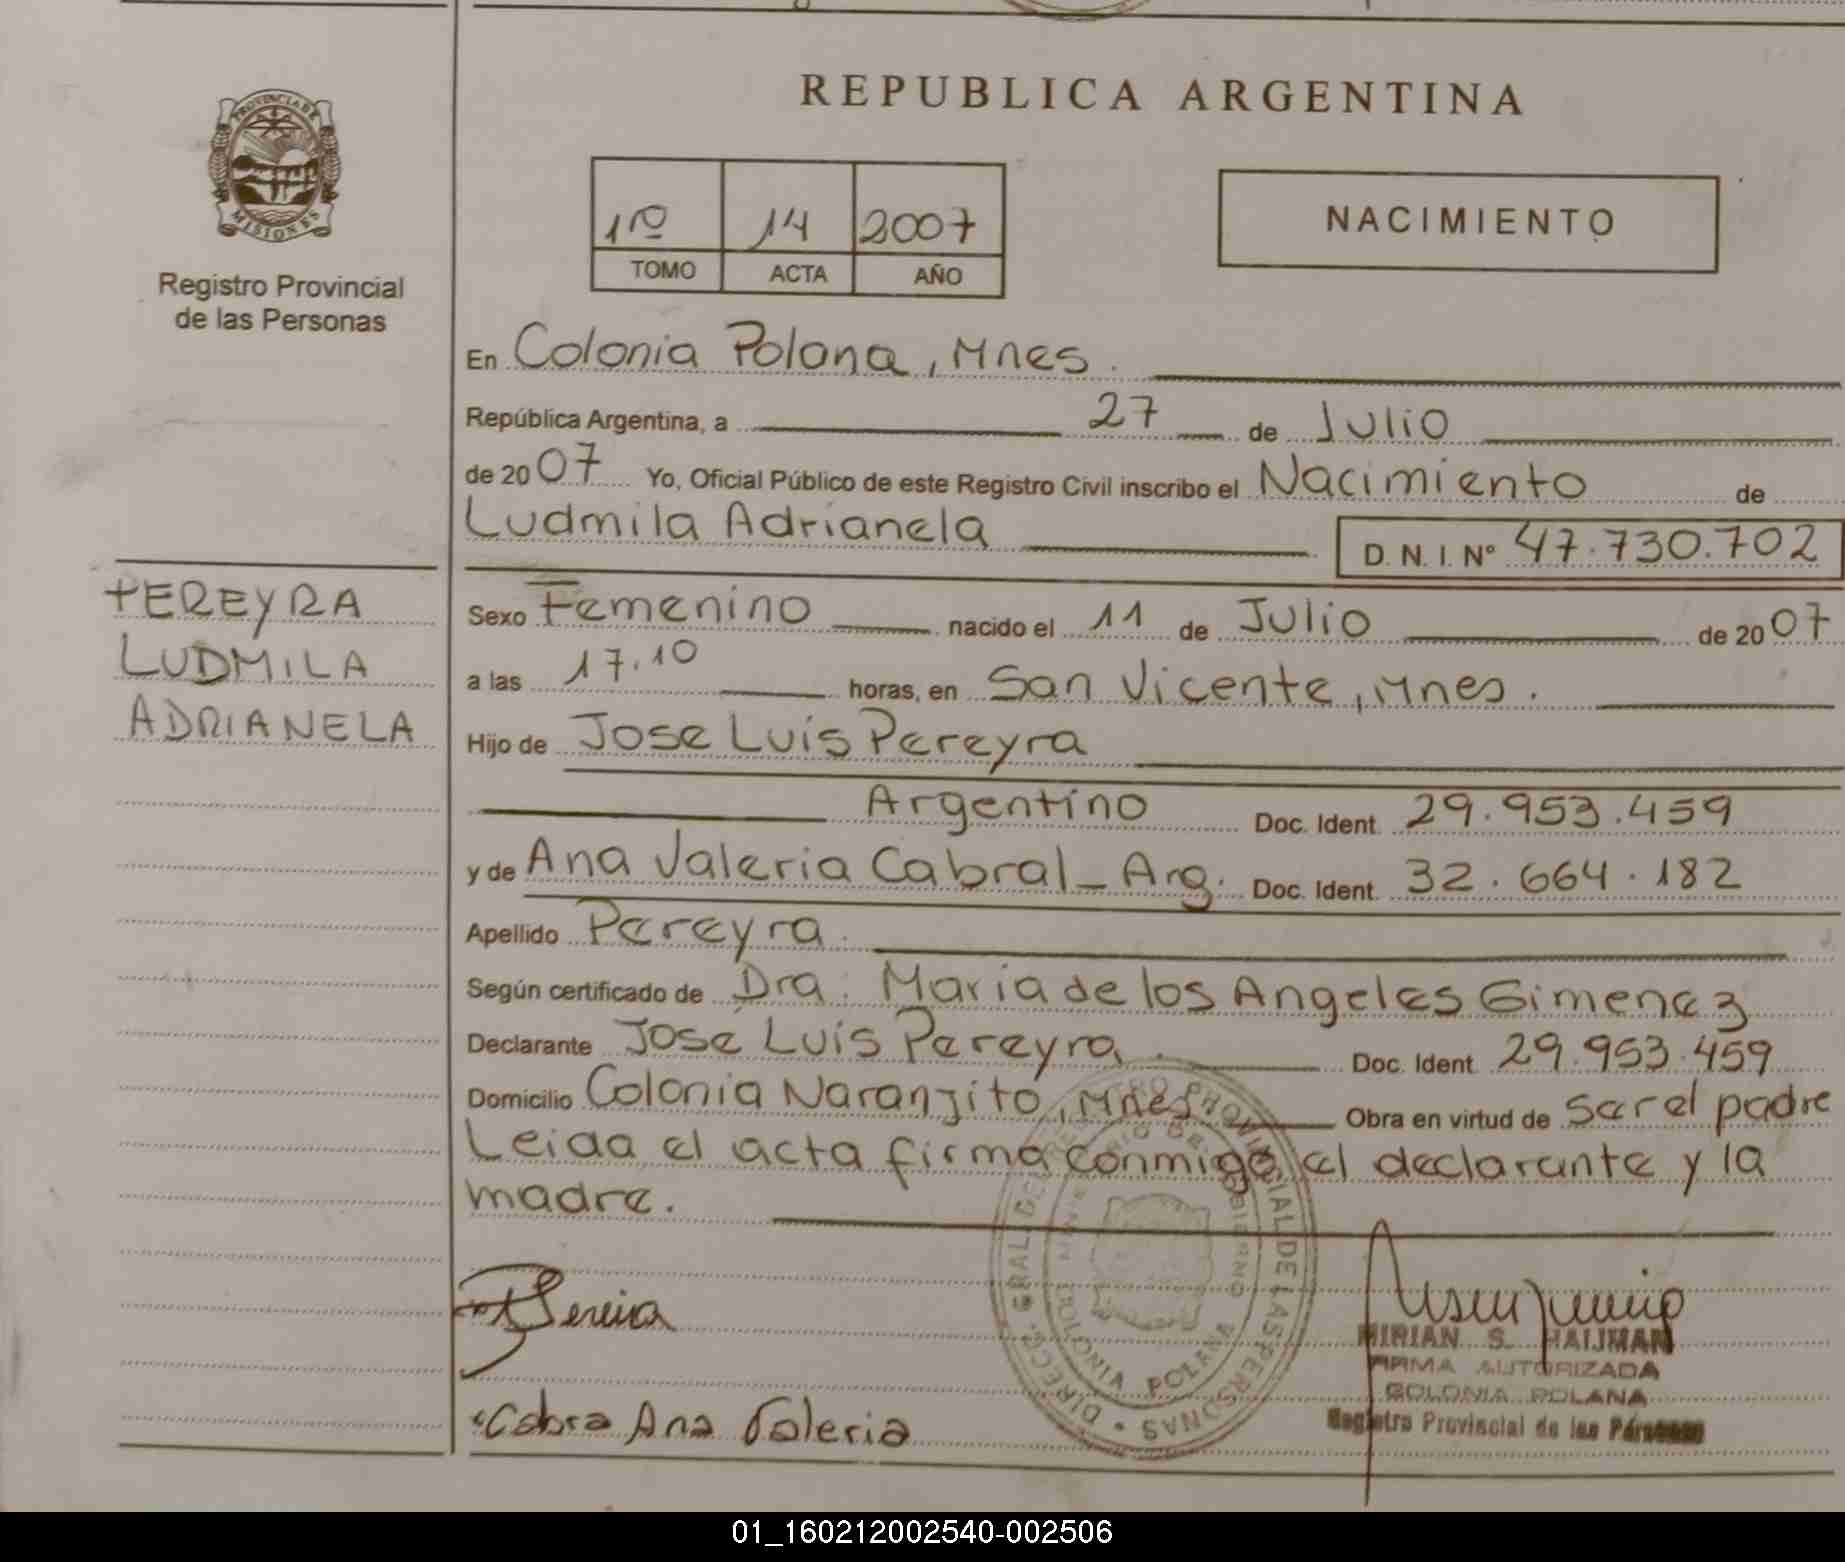 REPUBLICA ARGENTINA
PROVINCIA DE
MISIONES
Registro Provincial
de las Personas
1ro 14 2007
TOMO ACTA AÑO
NACIMIENTO
En Colonia Polona, Mnes.
República Argentina, a 27 de Julio
de 2007 Yo, Oficial Público de este Registro Civil inscribo el Nacimiento de
Ludmila Adrianela D. N. I. Nº 47.730.702
PEREYRA
LUDMILA
ADRIANELA
Sexo Femenino nacido el 11 de Julio de 2007
a las 17.10 horas, en San Vicente, Mnes.
Hijo de Jose Luis Pereyra
Argentino Doc. Ident. 29.953.459
y de Ana Valeria Cabral - Arg. Doc. Ident. 32.664.182
Apellido Pereyra
Según certificado de Dra. Maria de los Angeles Gimenez
Declarante Jose Luis Pereyra. Doc. Ident. 29.953.459
Domicilio Colonia Naranjito, Mnes Obra en virtud de ser el padre
Leida el acta firma conmigo el declarante y la
madre.
DIRECC. GRAL. DEL REGISTRO PROVINCIAL DE LAS PERSONAS
MINISTERIO DE GOBIERNO
COLONIA POLANA
Pereira
Cabra Ana Valeria
MIRIAN S. HAIJMAN
FIRMA AUTORIZADA
COLONIA POLANA
Registro Provincial de las Personas
01_160212002540-002506